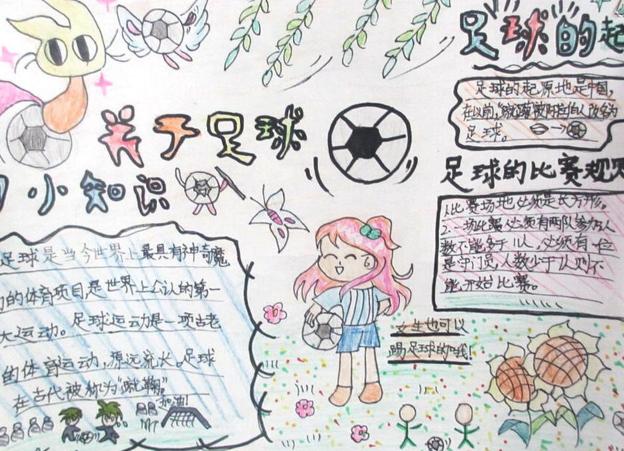 关于足球
小知识
足球是当今世界上最具有神奇魔
的体育项目是世界上公认的第一
大运动。足球运动是一项古老
的体育运动,源远流长。足球
在古代被称为"蹴鞠"
加油!
足球的起
足球的起源地是中国,
在以前,"蹴鞠"被阿拉伯人改
足球。
足球的比赛规
1.比赛场地必须是长方形。
2.一场比赛必须有两队参加,人
数不能多于11人,必须有一位
是守门员,人数少于 则不
能开始比赛。
女生也可以
踢足球的哦!